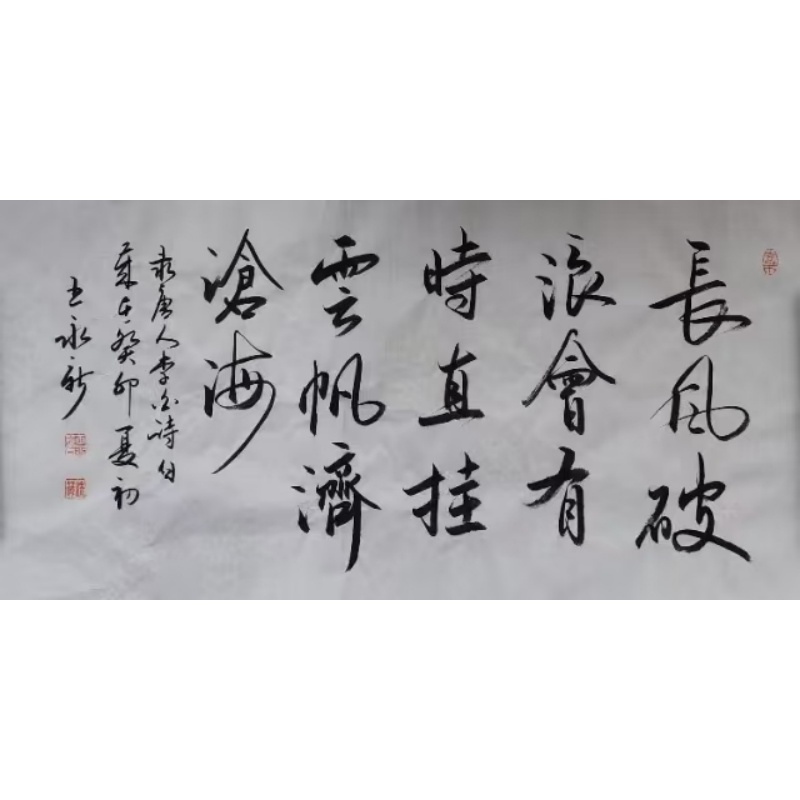 長風破
浪會有
時直挂
雲帆濟
滄海
录唐人李白詩句
癸卯夏初
王永新